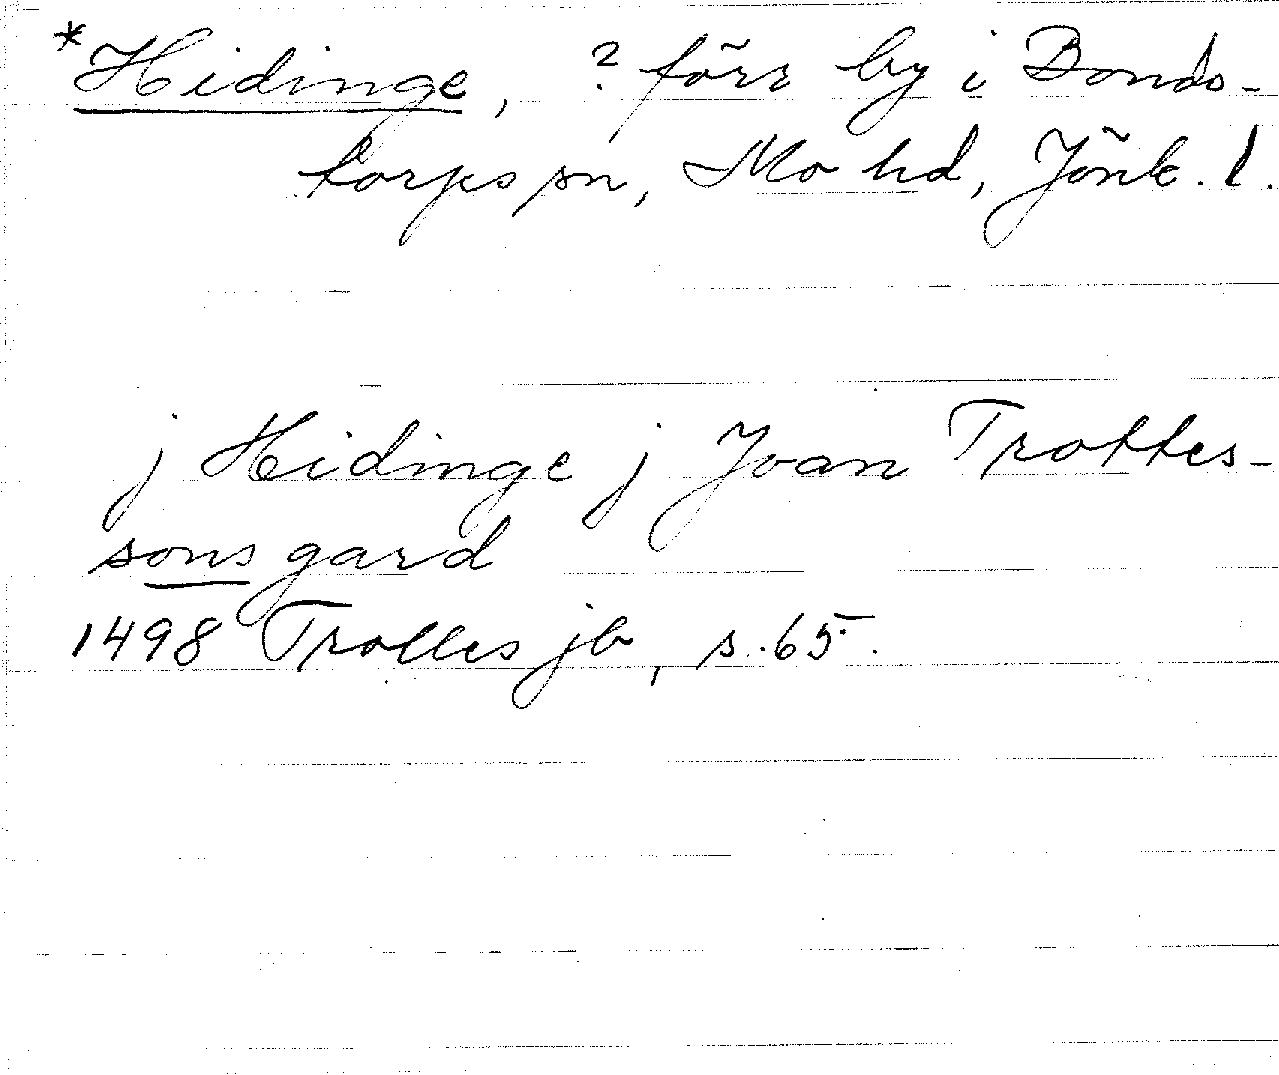 *Hidinge, ? förr by i Bonds-
torps sn, Mo hd, Jönk. l.
j Hidinge j Joan Trottes-
sons gard
1498 Trolles jb, s. 65.